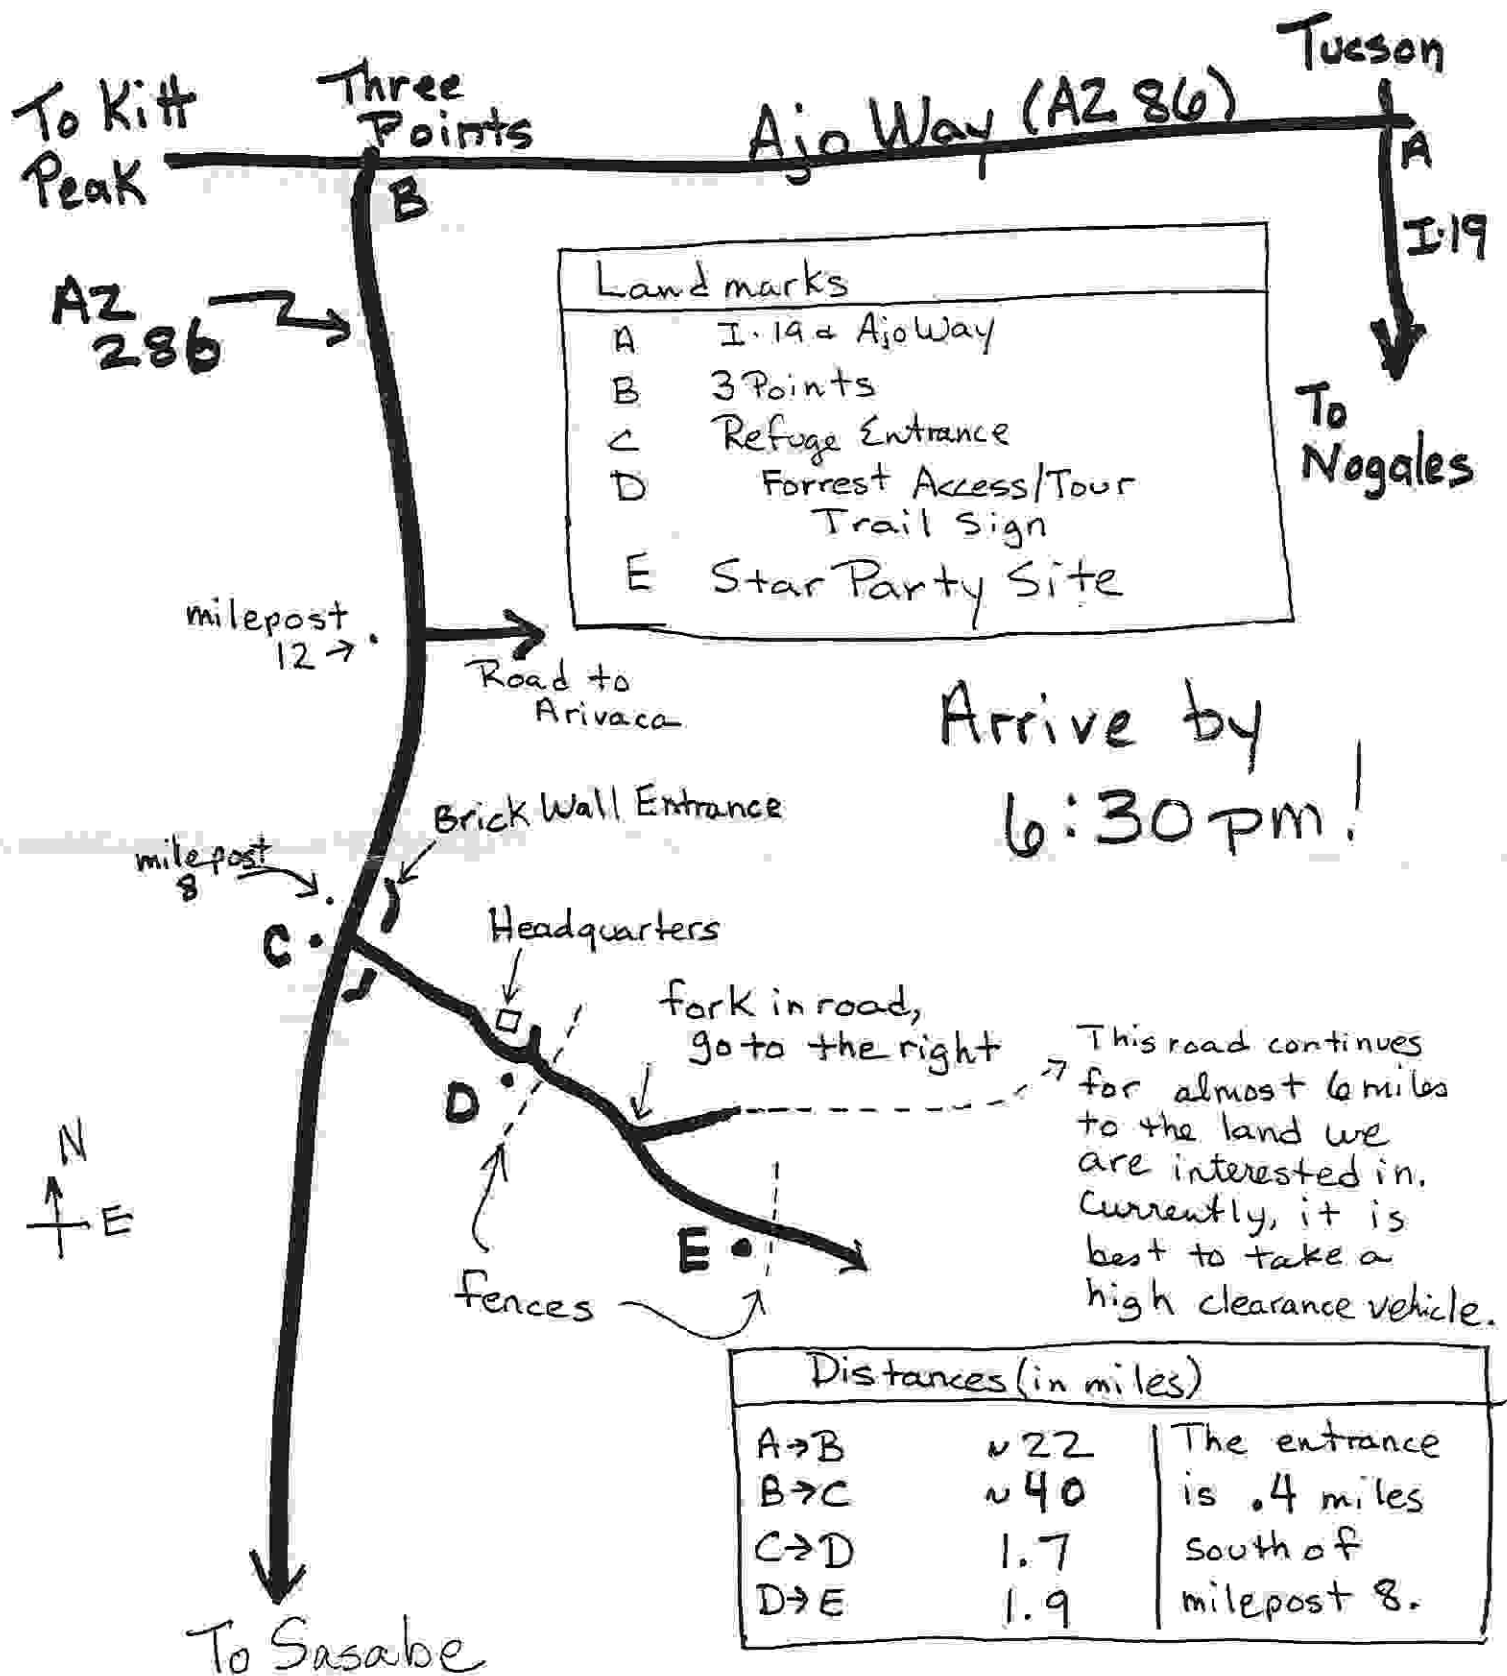 Tucson
To Kitt
Peak
Three
Points
Ajo Way (AZ 86)
A
B
I-19
AZ
286
To
Nogales
Landmarks
A I-19 & Ajo Way
B 3 Points
C Refuge Entrance
D Forrest Access/Tour
Trail Sign
E Star Party Site
milepost
12
Road to
Arivaca
Arrive by
6:30 pm!
Brick Wall Entrance
milepost
8
C
Headquarters
fork in road,
go to the right
D
This road continues
for almost 6 miles
to the land we
are interested in.
Currently, it is
best to take a
high clearance vehicle.
N
E
E
fences
Distances (in miles)
A→B ~22
B→C ~40
C→D 1.7
D→E 1.9
The entrance
is .4 miles
south of
milepost 8.
To Sasabe